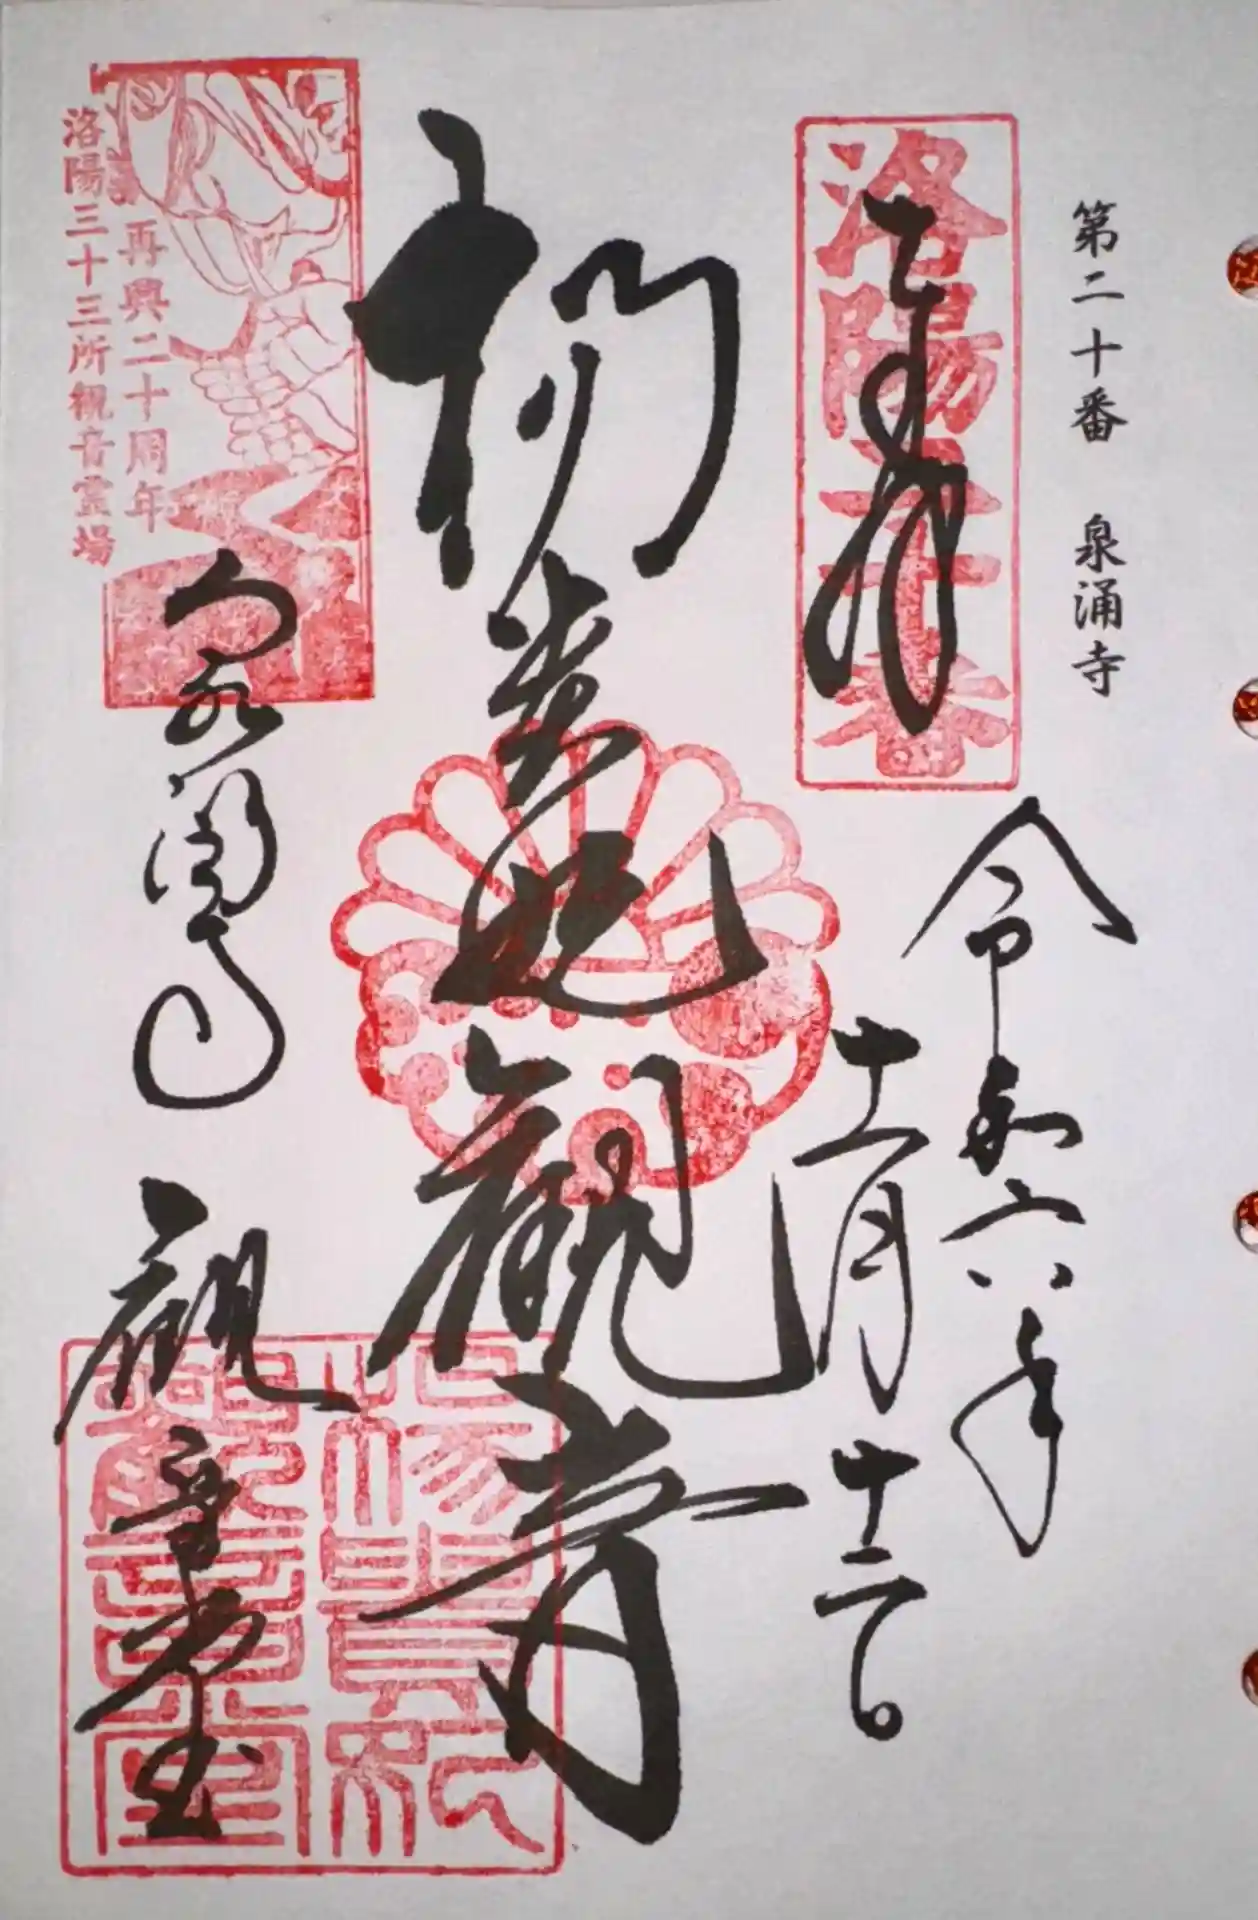 第二十番 泉涌寺
洛陽二十番
奉拝
令和六年
十一月十二日
楊貴妃観音
泉涌寺
観音堂
再興二十周年
洛陽三十三所観音霊場
楊貴妃
観音堂